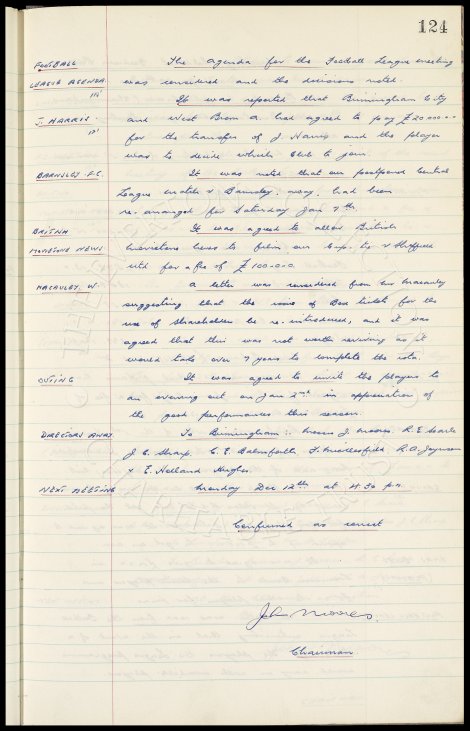 124
FOOTBALL The agenda for the Football League meeting
LEAGUE AGENDA. was considered and the decisions noted.
It was reported that Birmingham City
J. HARRIS. and West Brom A. had agreed to pay £20,000-0-0
for the transfer of J. Harris and the player
was to decide which Club to join.
BARNSLEY. F.C. It was noted that our postponed Central
League match v Barnsley, away, had been
re-arranged for Saturday Jan 7th.
BRITISH It was agreed to allow British
MOVIETONE NEWS Movietone News to film our Cup-tie v Sheffield
Utd for a fee of £100-0-0.
MACAULEY. W. A letter was considered from
suggesting that the issue of Box tickets for the
use of Shareholders be re-introduced, and it was
agreed that this was not worth reviving as it
would take over 7 years to complete the rota.
OUTING It was agreed to invite the players to
an evening out on Jan 2nd in appreciation of
the good performances this season.
DIRECTORS AWAY. To Birmingham:- Messrs J. Moores. R.E. Searle
J.C. Sharp. C.E. Balmforth, F. Micklesfield R.A. Joynson
& E. Holland Hughes.
NEXT MEETING Monday Dec 12th at 4.30 pm.
Confirmed as correct
Moores.
Chairman